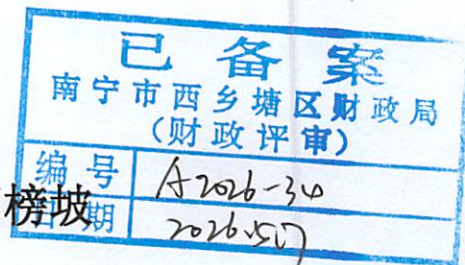 已备案
南宁市西乡塘区财政局
(财政评审)
编号 A2026-34
榜坡
日期